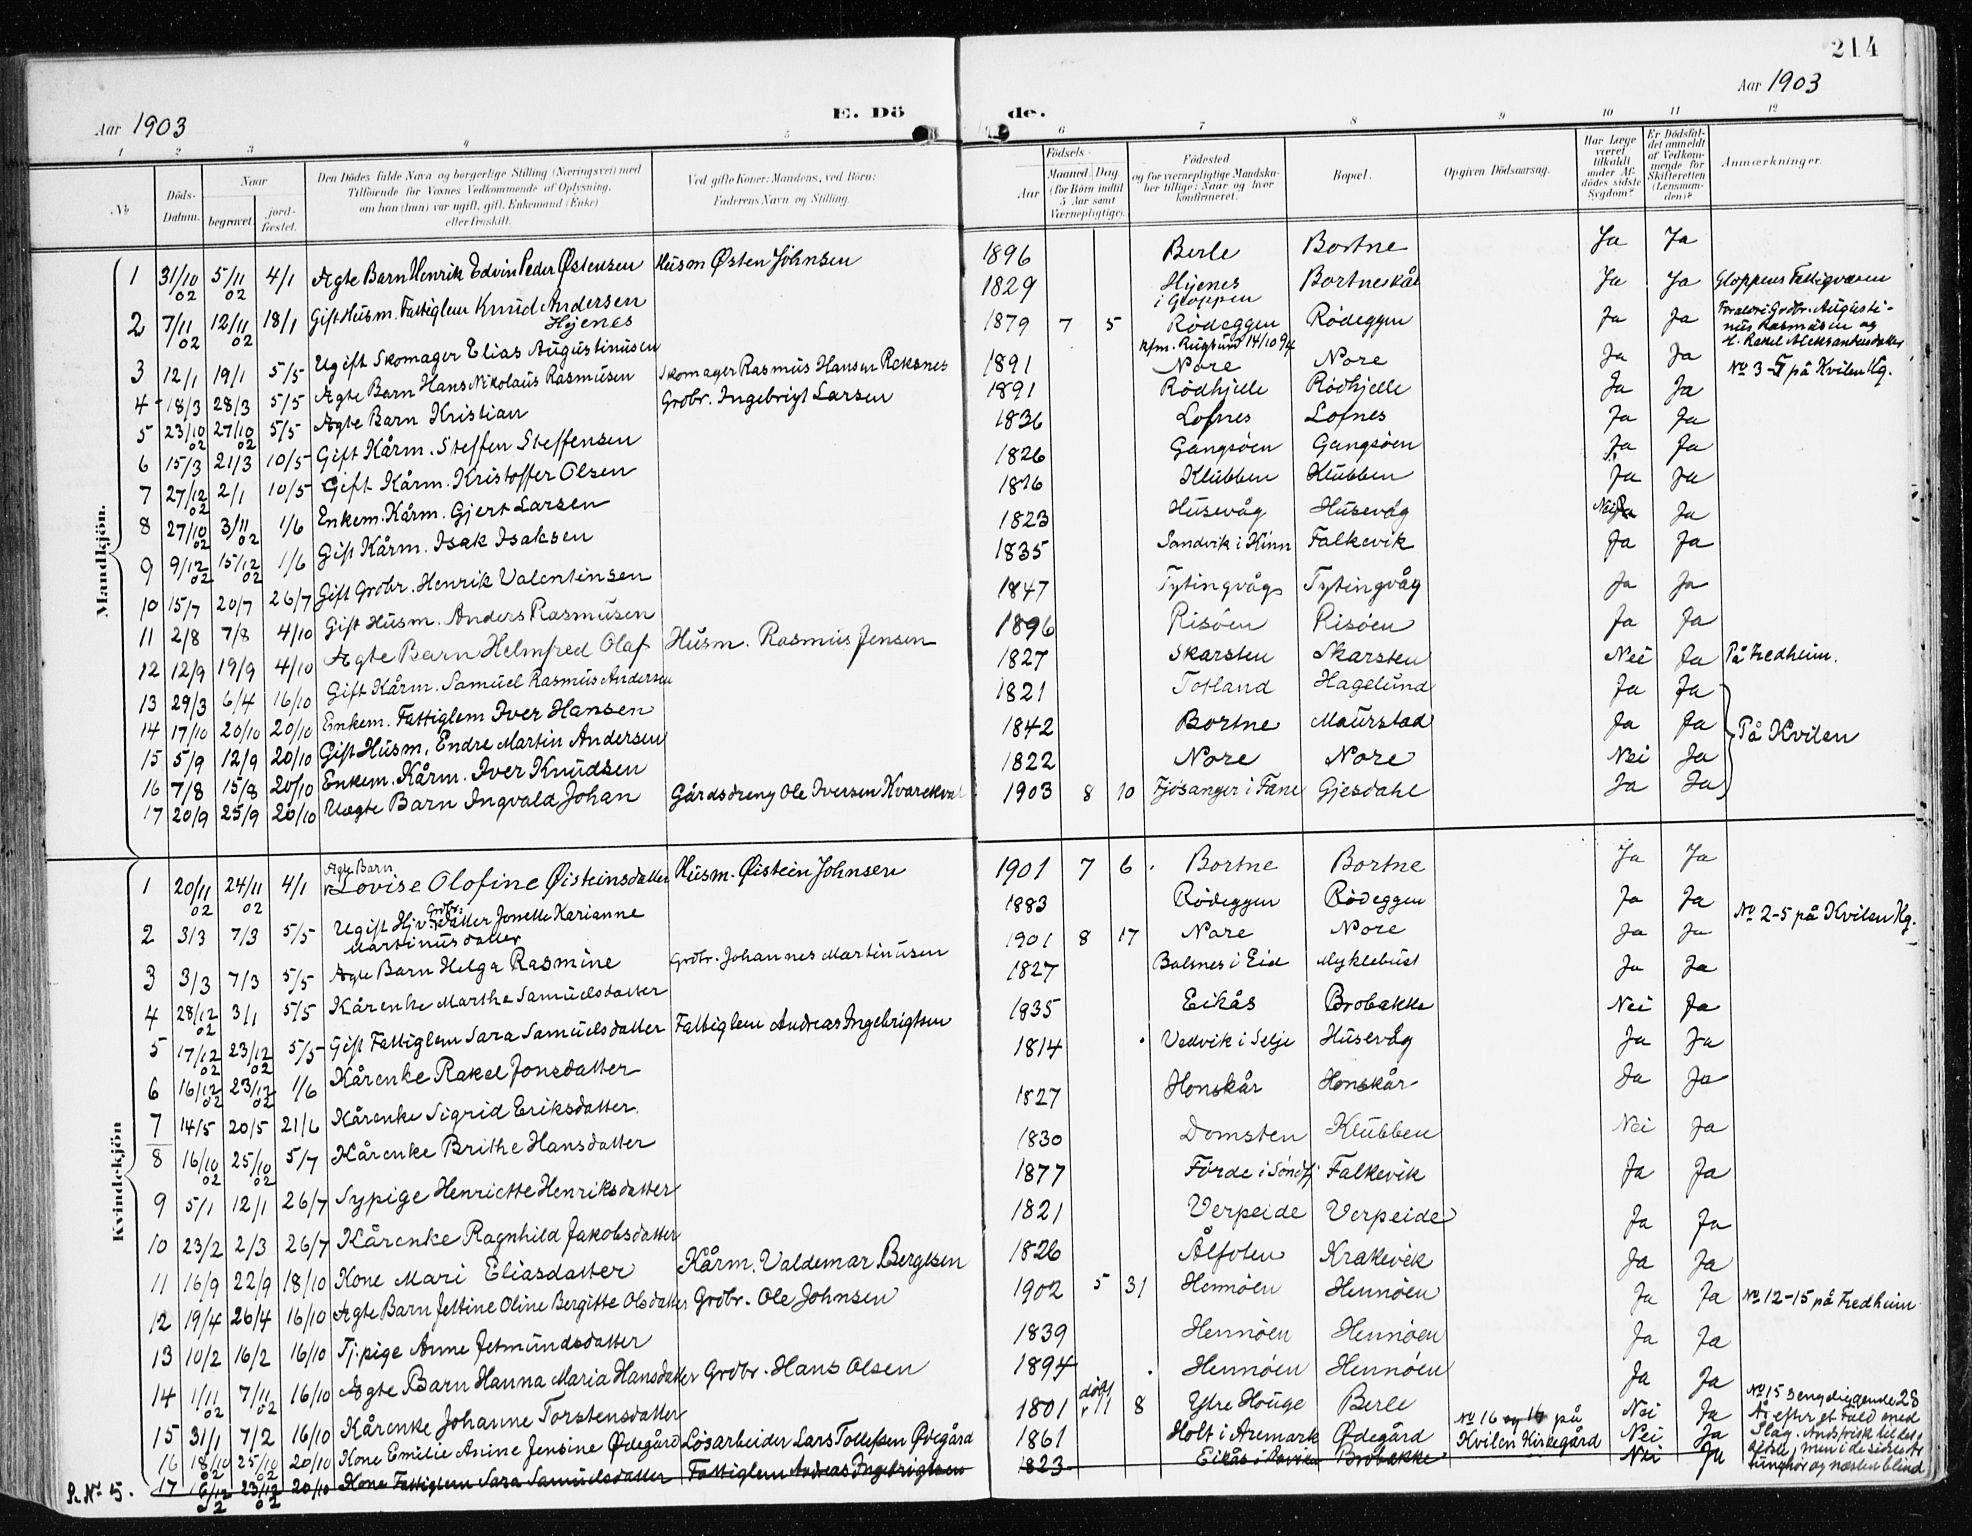 214
Aar 1903
E. Dö de.
Aar 1903
1 2 3 4 5 6 7 8 9 10 11 12
No
Döds-Datum.
Naar
begravet.
jord-fæstet.
Den Dödes fulde Navn og borgerlige Stilling (Næringsvei) med
Tilföiende for Voxnes Vedkommende af Oplysning,
om han (hun) var ugift, gift, Enkemand (Enke)
eller fraskilt.
Ved gifte Koner: Mandens, ved Börn:
Faderens Navn og Stilling.
Födsels-
Aar
Maaned. Dag.
(for Börn indtil
5 Aar samt
Værnepligtige).
Födested
og for værnepligtige Mandska-
ber tillige: Naar og hvor
konfirmeret.
Bopæl.
Opgiven Dödsaarsag.
Har Læge
været
tilkaldt
under Af-
dödes sidste
Sygdom?
Er Dödsfal-
det anmeldt
af Vedkom-
mende for
Skifteretten
(Lensman-
den)?
Anmærkninger.
Mandkjön.
1 31/10 02 5/11 02 4/1 Ægte Barn Henrik Edvin Peder Østensen Husm Østen Johnsen 1896 Berle Bortne Ja Ja
2 7/11 02 12/11 02 18/1 Gift Husm. Fattiglem Knud Andersen Hjenes 1829 Hyenes i Gloppen Bortneskår Ja Ja Gloppens Fattigvæsen
3 12/1 19/1 5/5 Ugift Skomager Elias Augustinusen 1879 7 5 Rödeggen Kfm. Rugsund 14/10 94 Rödeggen Ja Ja Forældre: Grdbr. Augusti-
nus Rasmusen og
H. Rakel Aleksandersdatter
4 18/3 28/3 5/5 Ægte Barn Hans Nikolaus Rasmusen Skomager Rasmus Hansen Raksnes 1891 Nore Nore Ja Ja No 3-5 på Kvilen Kg.
5 23/10 02 27/10 02 5/5 Ægte Barn Kristian Grdbr. Ingebrigt Larsen 1891 Rödhjelle Rödhjelle Ja Ja
6 15/3 21/3 10/5 Gift Kårm. Steffen Steffensen 1836 Lofnes Lofnes Ja Ja
7 27/12 02 2/1 10/5 Gift Kårm. Kristoffer Olsen 1826 Gangsöen Gangsöen Ja Ja
8 27/10 02 3/11 02 1/6 Enkem. Kårm. Gjert Larsen 1816 Klubben Klubben Ja Ja
9 9/12 02 15/12 02 1/6 Gift Kårm. Isak Isaksen 1823 Husevåg Husevåg Nei Ja
10 15/7 20/7 26/7 Gift Grdbr. Henrik Valentinsen 1835 Sandvik i Kinn Falkevik Ja Ja
11 2/8 7/8 4/10 Gift Husm. Anders Rasmusen 1847 Tytingvåg Tytingvåg Ja Ja
12 12/9 19/9 4/10 Ægte Barn Helmfred Olaf Husm. Rasmus Jensen 1896 Risöen Risöen Ja Ja
13 29/3 6/4 16/10 Gift Kårm. Samuel Rasmus Andersen 1827 Skarsten Skarsten Nei Ja På Fredheim.
14 17/10 20/10 20/10 Enkem. Fattiglem Iver Hansen 1821 Totland Hagelund Ja Ja
15 5/9 12/9 20/10 Gift Husm. Endre Martin Andersen 1842 Bortne Maurstad Ja Ja På Kvilen
16 7/8 15/8 20/10 Enkem. Kårm. Iver Knudsen 1822 Nore Nore Nei Ja
17 20/9 25/9 20/10 Uægte Barn Ingvald Johan Gårdsdreng Ole Iversen Kvarekval 1903 8 10 Fjösanger i Fane Gjesdahl Ja Ja
Kvindekjön
1 20/11 02 24/11 02 4/1 Ægte Barn Lovise Olofine Øisteinsdatter Husm. Øistein Johnsen 1901 7 6 Bortne Bortne Ja Ja
2 3/3 7/3 5/5 Ugift Hjv. Grdbr. datter Jonette Karianne Martinusdatter 1883 Rödeggen Rödeggen Ja Ja No 2-5 på Kvilen Kg.
3 3/3 7/3 5/5 Ægte Barn Helga Rasmine Grdbr. Johannes Martinusen 1901 8 17 Nore Nore Ja Ja
4 28/12 02 3/1 5/5 Kårenke Marthe Samuelsdatter 1827 Balsnes i Eid Myklebust Ja Ja
5 17/12 02 23/12 02 5/5 Gift Fattiglem Sara Samuelsdatter Fattiglem Andreas Ingebrigtsen 1835 Eikås Brobakke Nei Ja
6 16/12 02 23/12 02 1/6 Kårenke Rakel Jonsdatter 1814 Vedvik i Selje Husevåg Ja Ja
7 14/5 20/5 21/6 Kårenke Sigrid Eriksdatter. 1827 Honskår Honskår Ja Ja
8 16/10 02 25/10 02 5/7 Kårenke Brithe Hansdatter 1830 Domsten Klubben Nei Ja
9 5/1 12/1 26/7 Sypige Henriette Henriksdatter 1877 Förde i Söndfj Falkevik Ja Ja
10 23/2 2/3 26/7 Kårenke Ragnhild Jakobsdatter 1821 Verpeide Verpeide Ja Ja
11 16/9 22/9 18/10 Kone Mari Eliasdatter Kårm. Valdemar Bergtsen 1826 Ålfoten Krakevik Ja Ja
12 19/4 26/4 16/10 Ægte Barn Jettine Oline Bergitte Olsdatter Grdbr. Ole Johnsen 1902 5 31 Hennöen Hennöen Ja Ja No 12-15 på Fredheim
13 10/2 16/2 16/10 Tj.pige Anne Jetmundsdatter 1839 Hennöen Hennöen Ja Ja
14 1/11 02 7/11 02 16/10 Ægte Barn Hanna Maria Hansdatter Grdbr. Hans Olsen 1894 Hennöen Hennöen Ja Ja
15 31/1 7/2 16/10 Kårenke Johanne Torstensdatter 1801 11 8 Ytre Houge Berle Nei Ja No 15 sengeliggende 28
År efter et Fald med
Slag. Andsfrisk til det
sidste, men i de sidste År
tunghör og næsten blind
16 18/10 02 25/10 02 20/10 Kone Emilie Anine Jensine Ødegård Lösarbeider Lars Tollefsen Ødegård 1861 Holt i Aremark Ødegård No 16 og 17 på
Kvilen Kirkegård Nei Ja
S. No 5. 17 6/12 02 23/12 02 20/10 Kone Fattiglem Sara Samuelsdatter Fattiglem Andreas Ingebrigtsen 1823 Eikås i Davik Brobakke Nei Ja